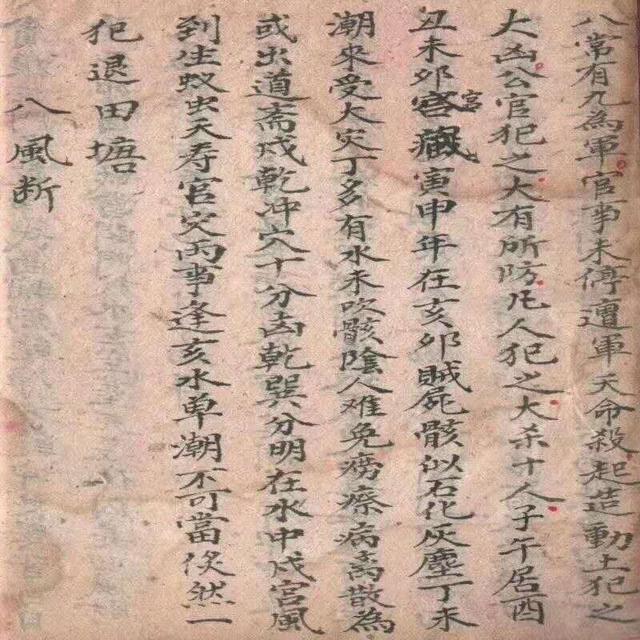 八常有凡為軍官事未停遭軍天命殺起造動土犯之
大凶公官犯之大有所防凡人犯之大杀十人子午居酉
丑未卯宮藏寅申年在亥卯賊屍骸似石化灰塵丁未
潮來受大災丁多有水未吹骸陰人难免痨瘵病离散為
或出道斎戍乾冲六十分凶乾巽分明在水中戍宫風
到生蚁出夭寿官災両事逢亥水卑潮不可當倐然一
犯退田塘
八風断